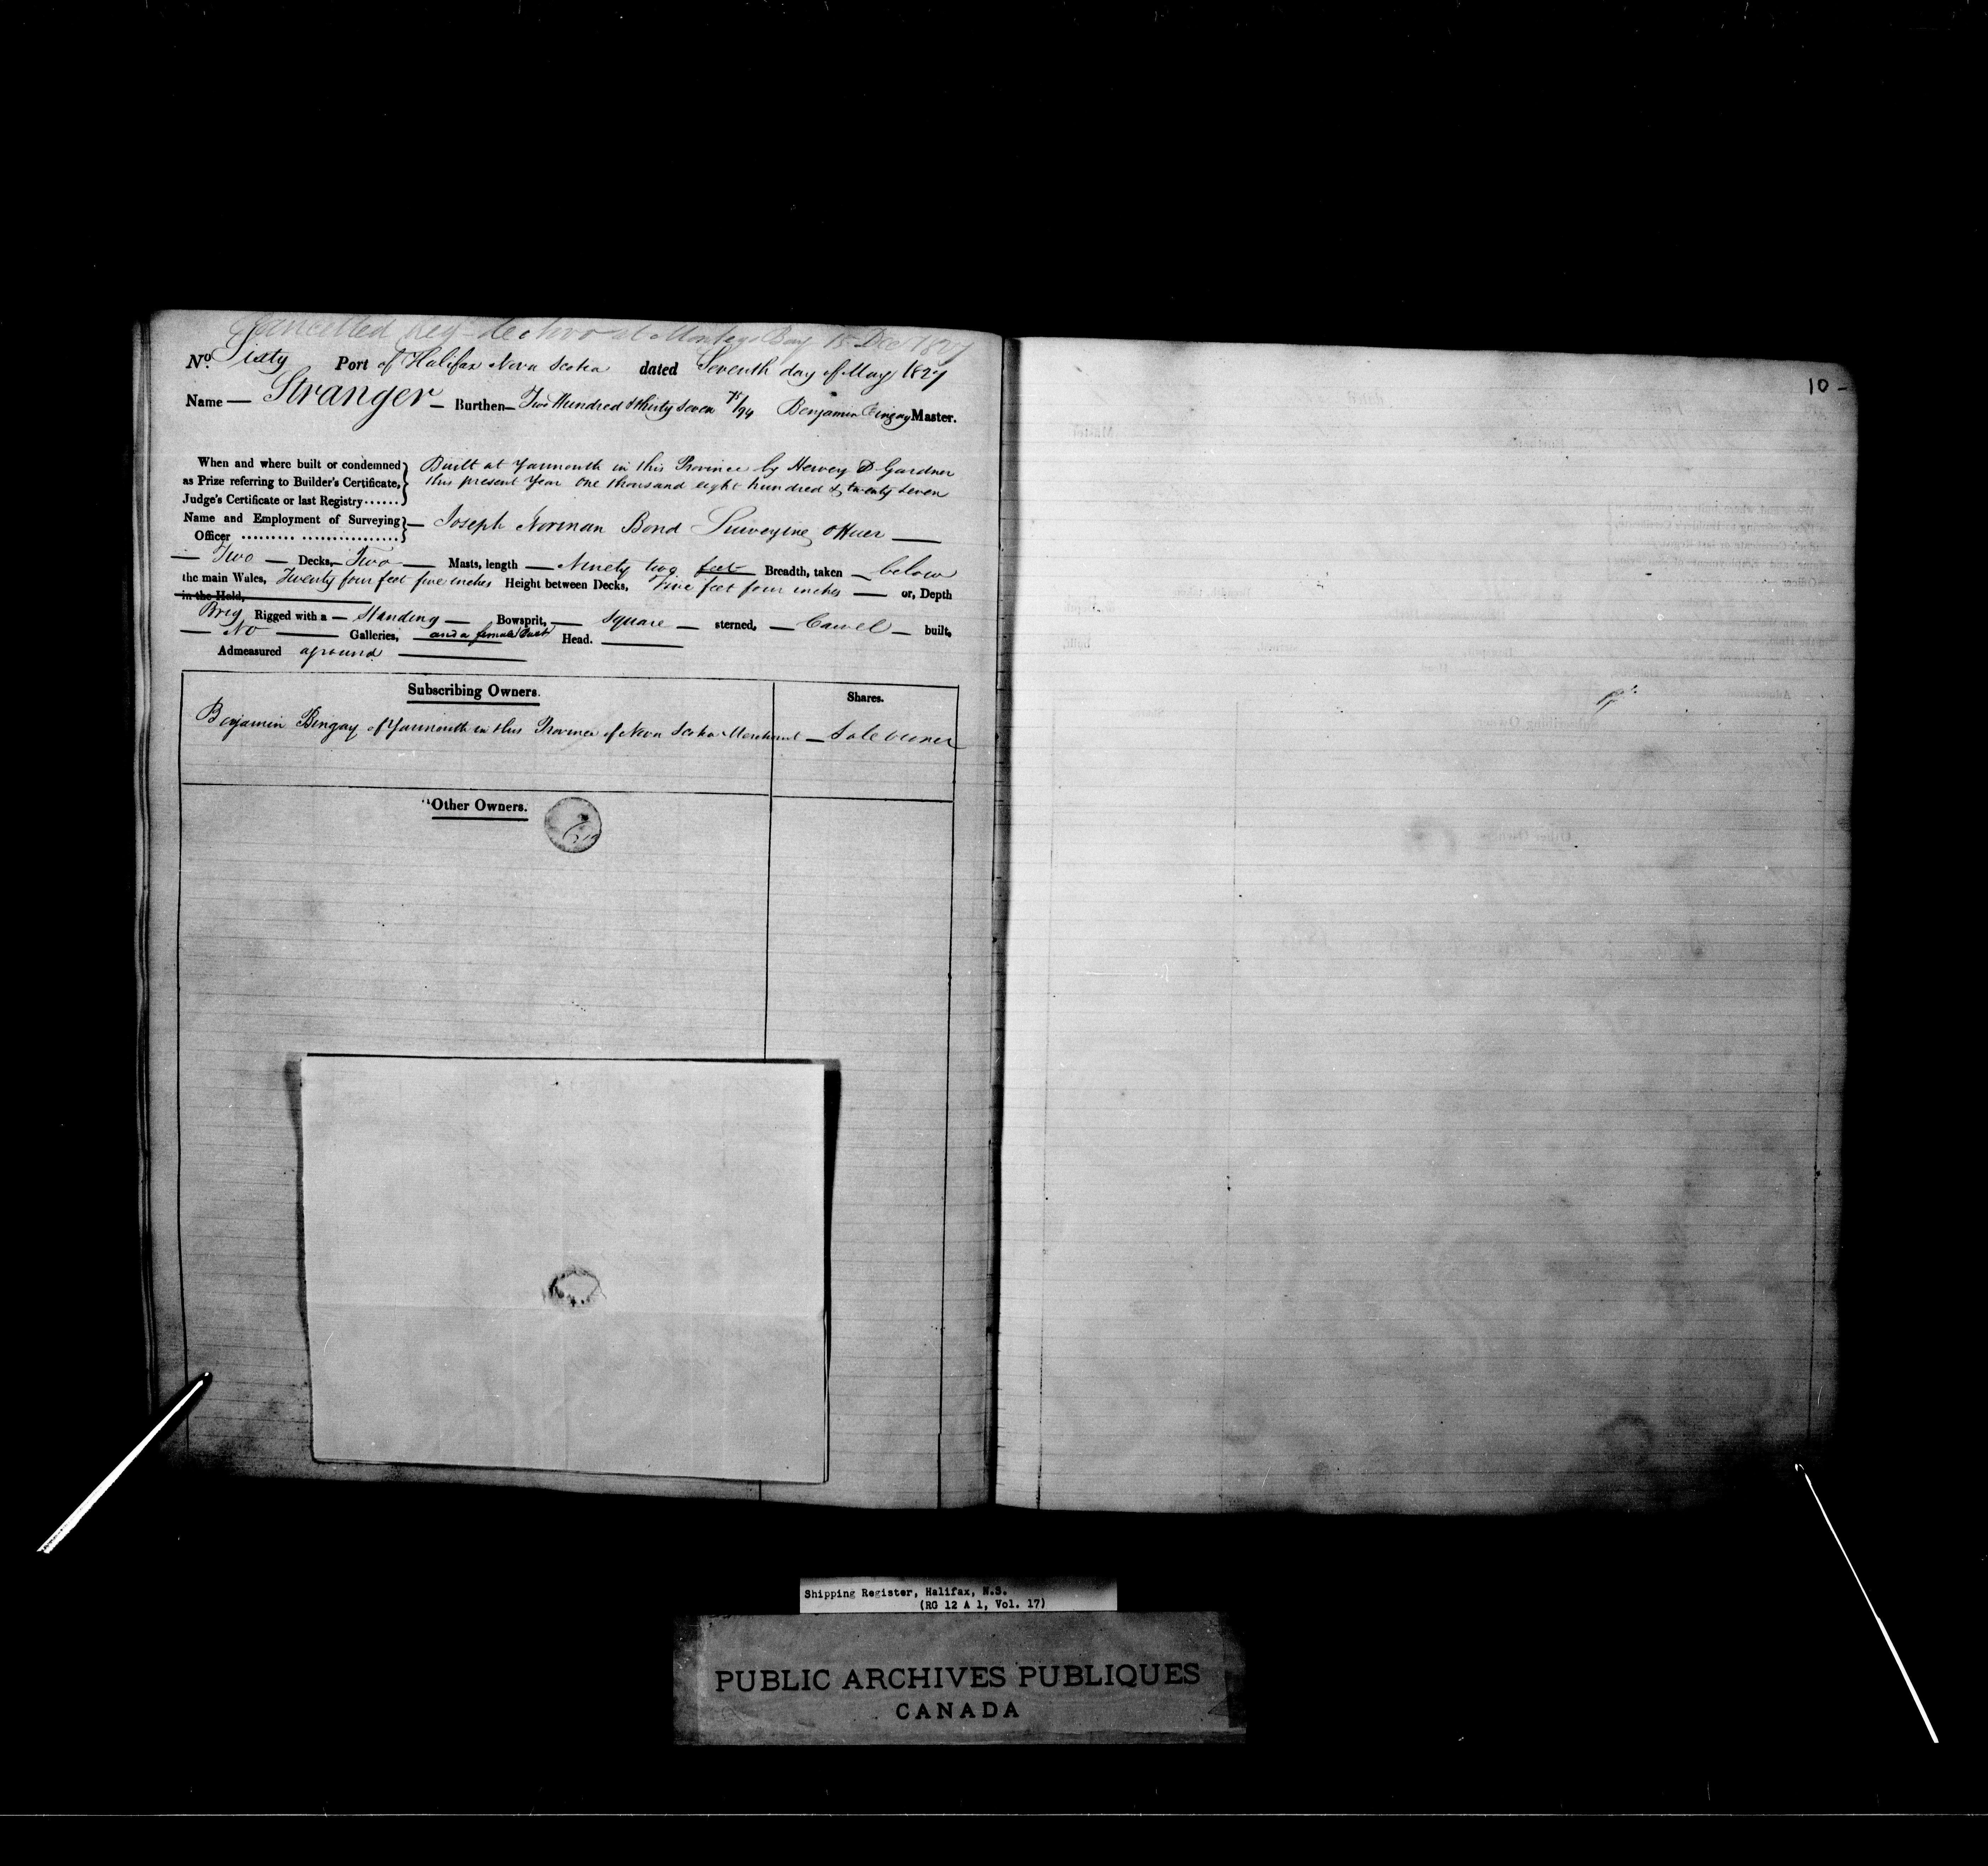 Cancelled Reg. de novo at Montego Bay 15 Dec 1827
No. Sixty Port of Halifax Nova Scotia dated Seventh day of May 1827
Name — Stranger — Burthen — Two Hundred & thirty seven 75/94 Benjamin Bingay Master.
When and where built or condemned as Prize referring to Builder's Certificate, Judge's Certificate or last Registry ......
Built at Yarmouth in this Province by Hervey D Gardner
this present Year One thousand eight hundred & twenty seven
Name and Employment of Surveying Officer ......... ................ — Joseph Norman Bond Surveying Officer —
— Two — Decks, — Two — Masts, length — Ninety two feet Breadth, taken — below
the main Wales, Twenty four feet five inches Height between Decks, Five feet four inches — or, Depth
in the Hold,
Brig Rigged with a — Standing — Bowsprit, — Square — sterned, — Carvel — built,
— No — Galleries, and a female Bust Head. —
Admeasured aground —
Subscribing Owners. Shares.
Benjamin Bingay of Yarmouth in this Province of Nova Scotia Merchant — Sole owner
Other Owners.
10 -
Shipping Register, Halifax, N.S.
(RG 12 A 1, Vol. 17)
PUBLIC ARCHIVES PUBLIQUES
CANADA